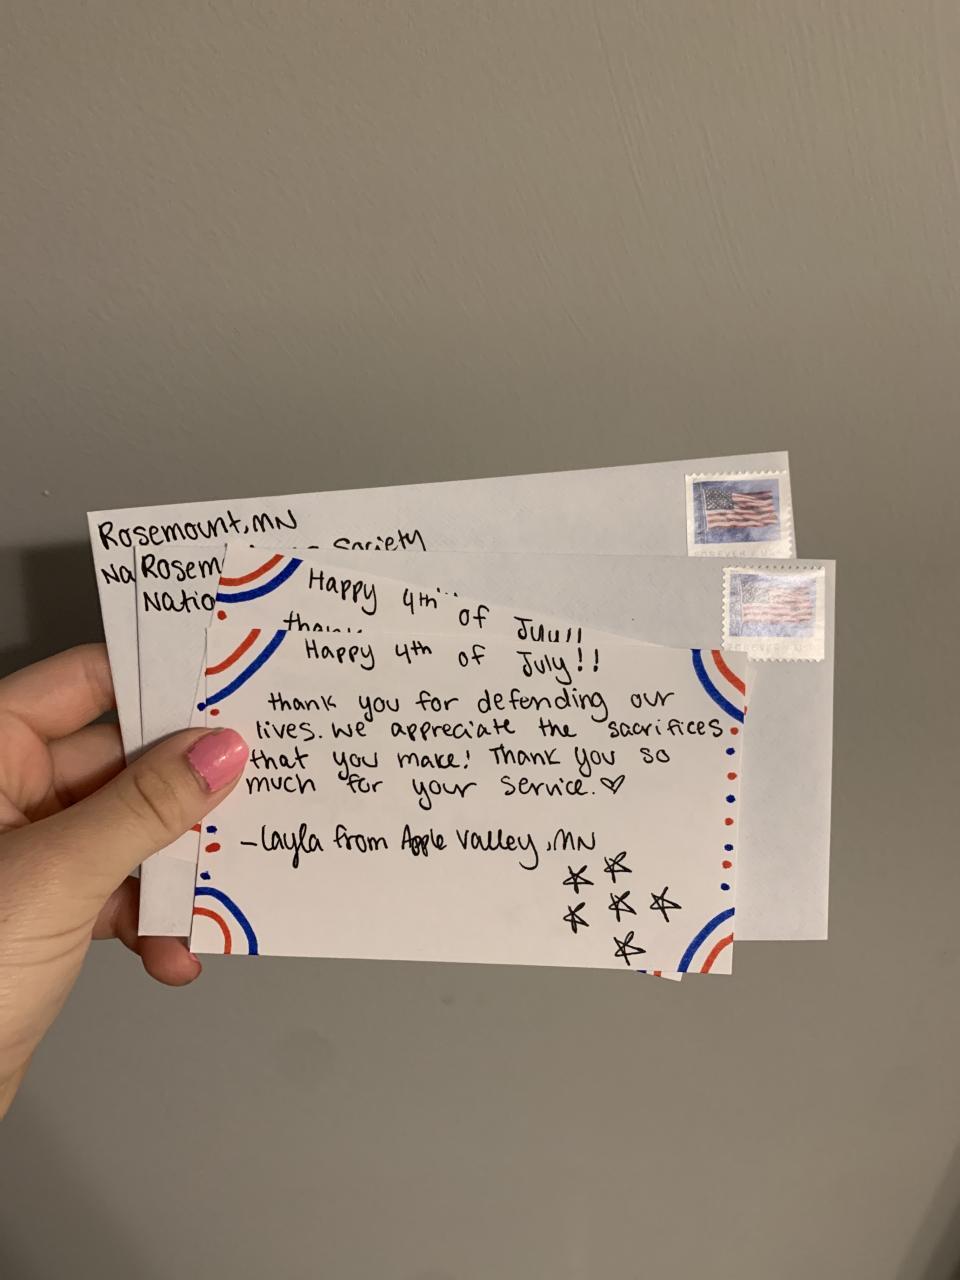 Rosemount, MN
Na Society
Rosem
Natio
Happy 4th of July!!
thank
Happy 4th of July!!
thank you for defending our
lives. We appreciate the sacrifices
that you make! Thank you so
much for your service. ♡
- Layla from Apple Valley, MN